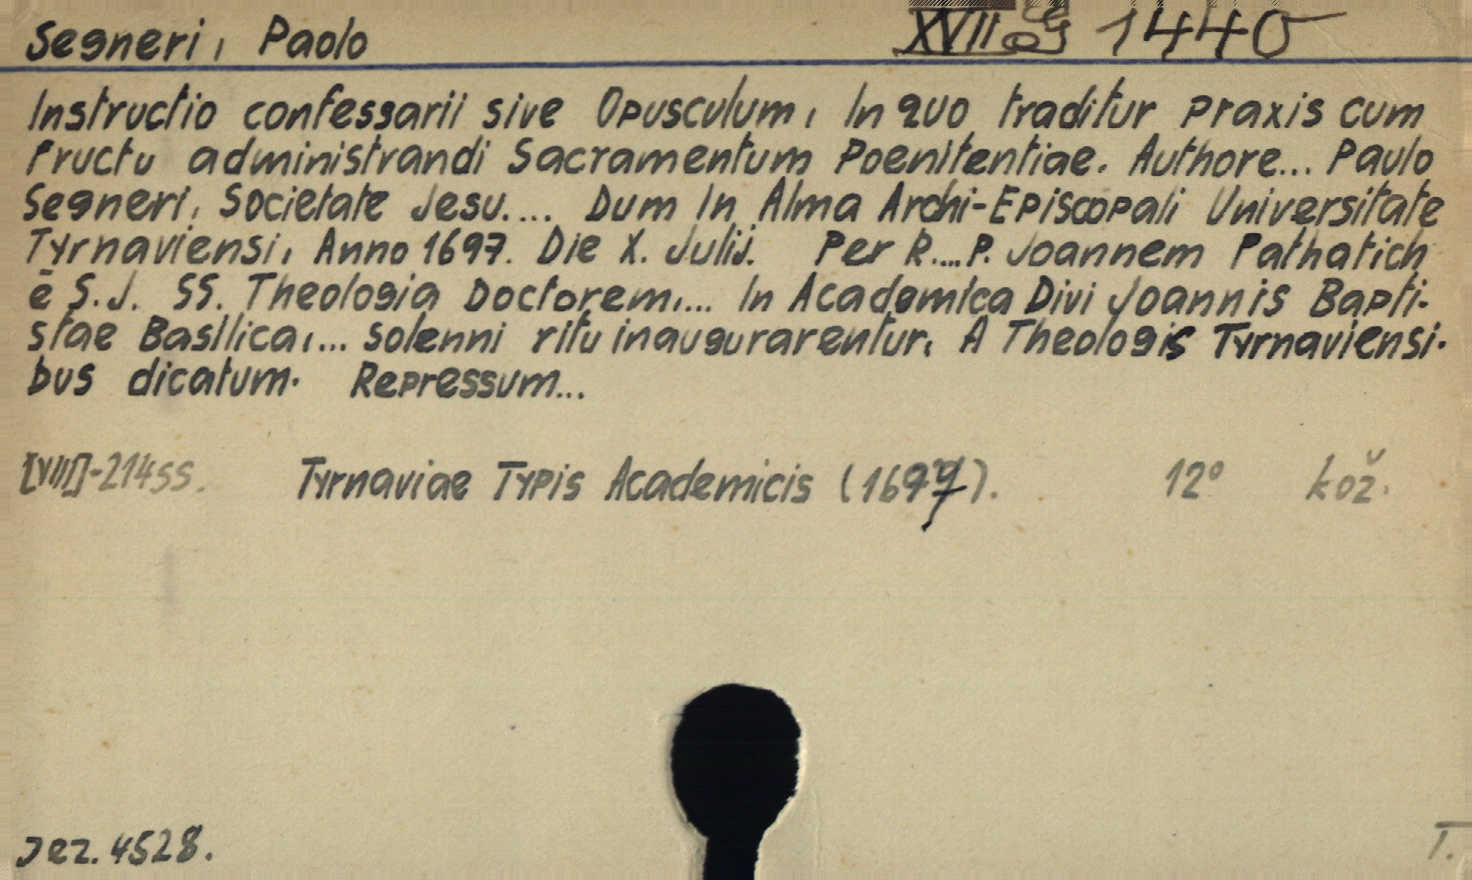 Segneri, Paolo XVII 1440
Instructio confessarii sive Opusculum, In quo traditur praxis cum
fructu administrandi Sacramentum Poenitentiae. Authore... Paulo
Segneri, Societate Jesu.... Dum In Alma Archi-Episcopali Universitate
Tyrnaviensi, Anno 1697. Die X. Julij. Per R....P. Joannem Pathatich
ē S.J. SS. Theologia Doctorem,... In Academica Divi Joannis Bapti-
stae Basilica,... solenni ritu inaugurarentur, A Theologis Tyrnaviensi-
bus dicatum. Repressum...
[VIII]-214ss. Tyrnaviae Typis Academicis (1697). 12° kož.
Jez. 4528. T.